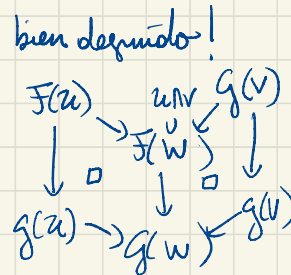 bien definido!
F(U) U∩V G(V)
F(W)
G(U) G(W) G(V)